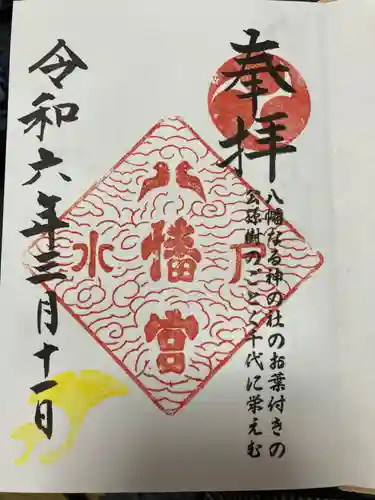 奉拝
八幡なる神の社のお葉付きの
公孫樹のごとく千代に栄えむ
八幡宮
水戸
令和六年三月十一日